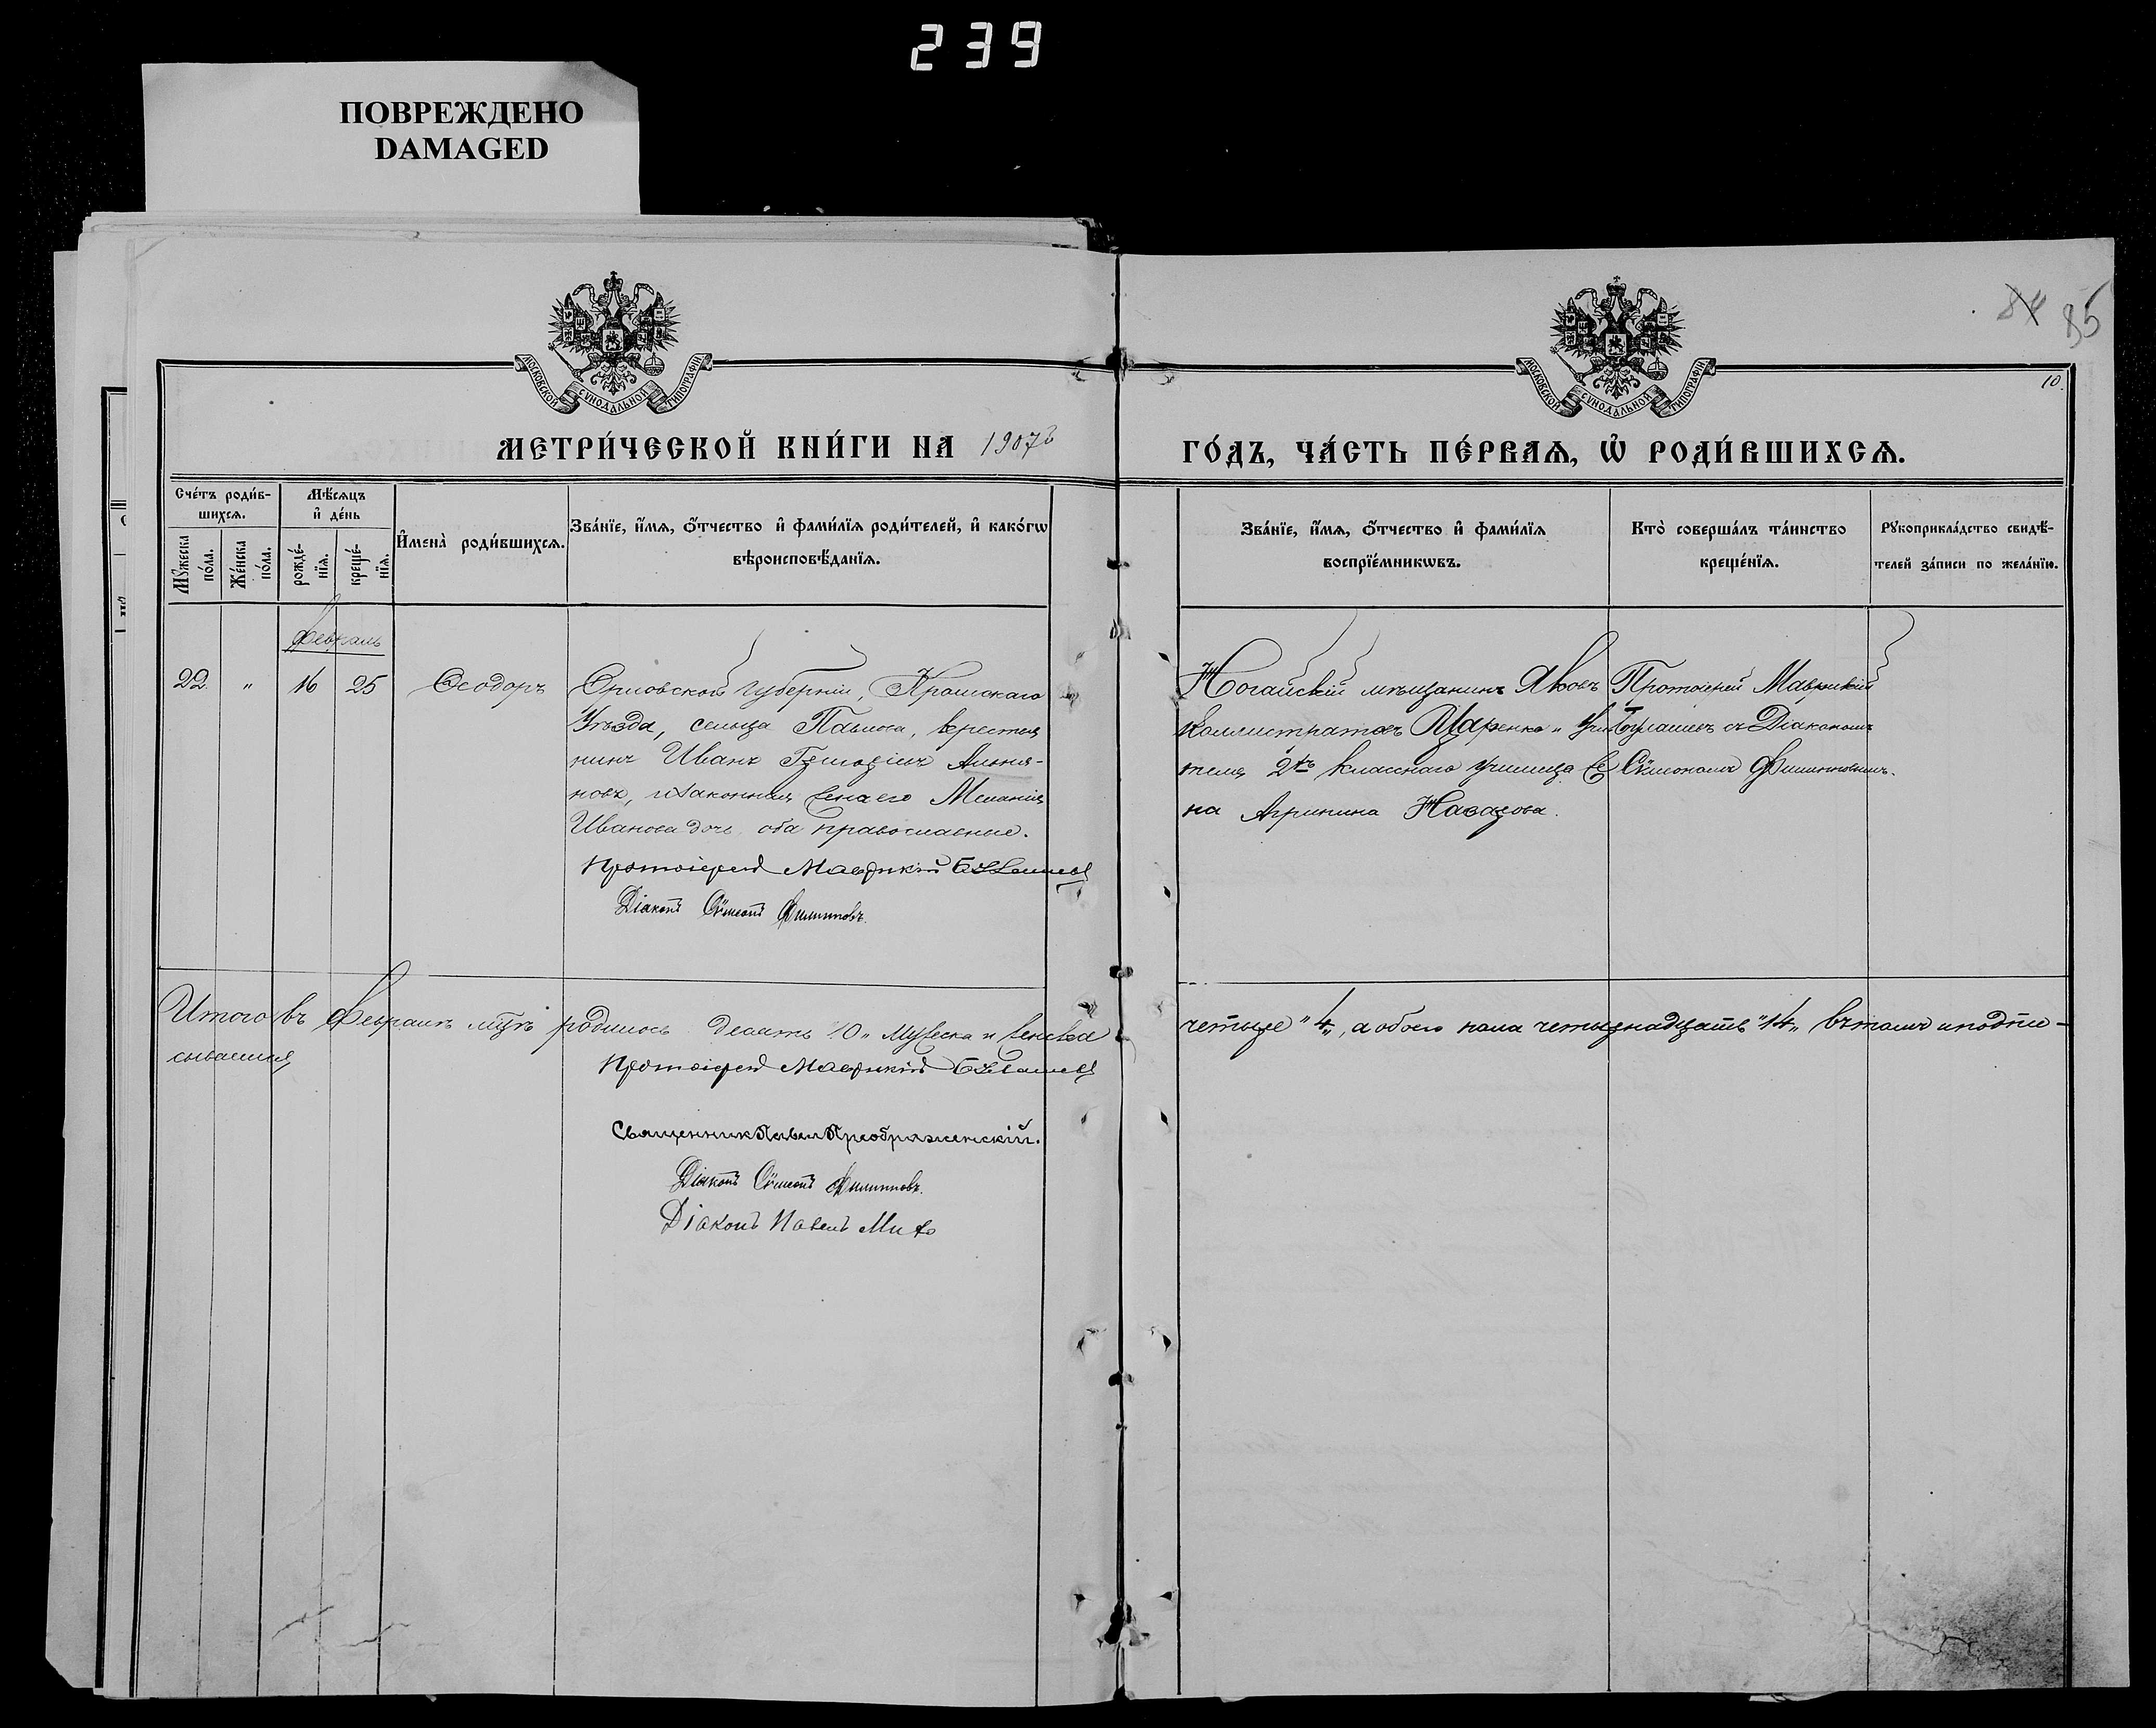 239
ПОВРЕЖДЕНО
DAMAGED
84 85
МОСКОВСКОЙ СУНОДАЛЬНОЙ ТИПОГРАФІИ
МОСКОВСКОЙ СУНОДАЛЬНОЙ ТИПОГРАФІИ
10.
МЕТРИ́ЧЕСКОЙ КНИ́ГИ НА 1907й
ГО́ДЪ, ЧА́СТЬ ПЕ́РВАѦ, Ѡ҆ РОДИ́ВШИХСѦ.
Сче́тъ роди́в-
шихсѧ.
Мꙋжеска по́ла.
Же́нска по́ла.
Мѣ́сѧцъ
и҆ де́нь
рожде́-
нїѧ.
креще́-
нїѧ.
И҆мена̀ роди́вшихсѧ.
Зва́нїе, и҆́мѧ, ѻ҆́тчество и҆ фами́лїѧ роди́телей, и҆ како́гѡ
вѣроисповѣ́данїѧ.
Зва́нїе, и҆́мѧ, ѻ҆́тчество и҆ фами́лїѧ
воспрїе́мникѡвъ.
Кто̀ соверша́лъ та́инство
креще́нїѧ.
Рꙋкоприкла́дство свидѣ́-
телей за́писи по жела́нїю.
Февраль
22. " 16 25 Ѳеодоръ
Орловской губерніи, Кромскаго
Уѣзда, сельца крестья
нинъ Иванъ
новъ, и законная жена его Меланія
Иванова дочь, оба православные.
Протоіерей Маврикій
Діаконъ Сѵмеонъ Филипповъ.
Ногайскій мѣщанинъ Яковъ
Калистратовъ Царенко и Учи
теля 2хъ класснаго училища же
на Агрипина Назарова.
Протоіерей Маврикій
съ Діакономъ
Сѵмеономъ Филипповымъ.
Итого въ Февралѣ мцѣ родилось десять "10" мужеска и женска
четыре "4", а обоего пола четырнадцать "14" въ томъ и подпи-
сываемся
Протоіерей Маврикій
Священник Павел Преображенскій.
Діаконъ Сѵмеонъ Филипповъ.
Діаконъ Павелъ